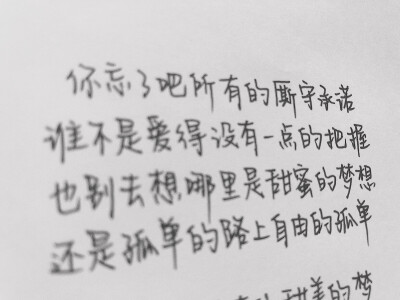 你忘了吧所有的厮守承诺
谁不是爱得没有一点的把握
也别去想哪里是甜蜜的梦想
还是孤单的路上自由的孤单
甜美的梦